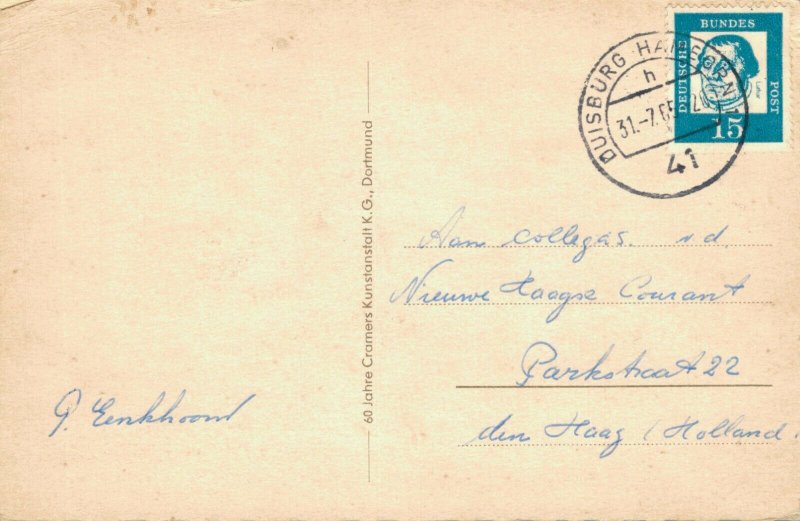 BUNDES
DEUTSCHE
POST
15
DUISBURG HAMBORN
h
31.-7.65
41
60 Jahre Cramers Kunstanstalt K.G., Dortmund
Aan collegas. v d.
Nieuwe Haagse Courant
Parkstraat 22
den Haag (Holland.
P. Eenkhoorn